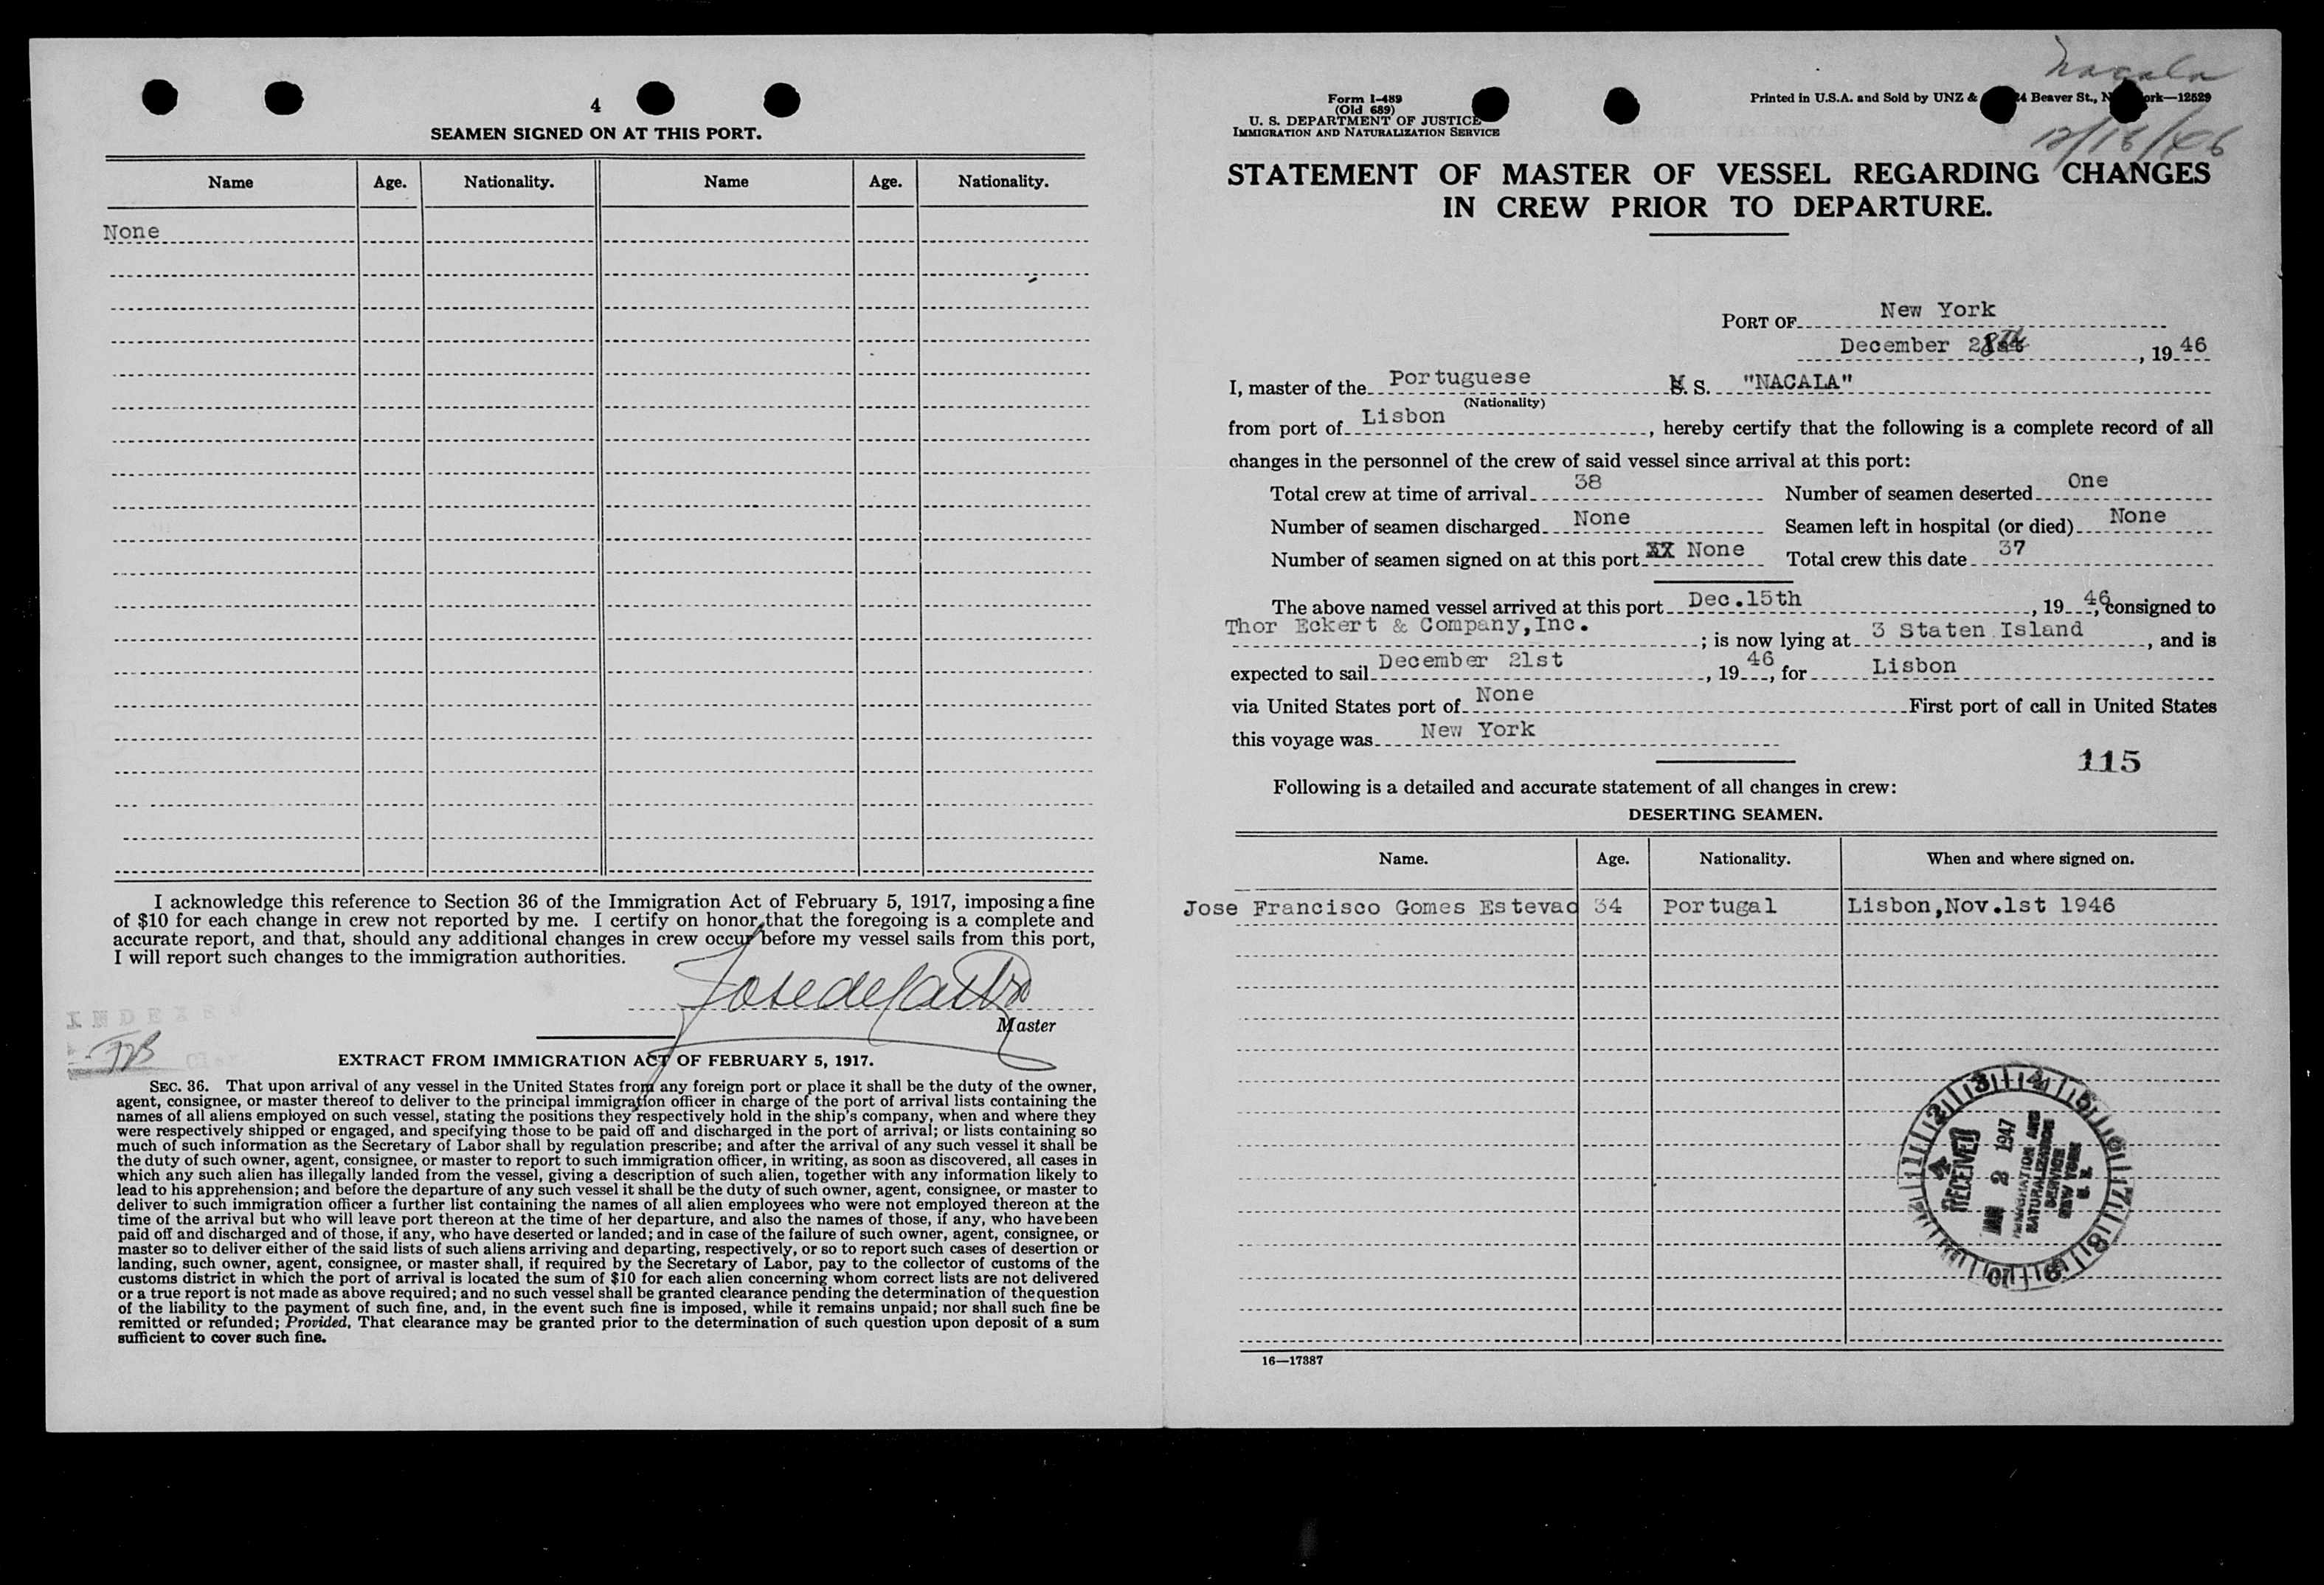 4
SEAMEN SIGNED ON AT THIS PORT.
Name Age. Nationality. Name Age. Nationality.
None
I acknowledge this reference to Section 36 of the Immigration Act of February 5, 1917, imposing a fine
of $10 for each change in crew not reported by me. I certify on honor that the foregoing is a complete and
accurate report, and that, should any additional changes in crew occur before my vessel sails from this port,
I will report such changes to the immigration authorities.
Jose de Castro
Master
INDEXED
EXTRACT FROM IMMIGRATION ACT OF FEBRUARY 5, 1917.
SEC. 36. That upon arrival of any vessel in the United States from any foreign port or place it shall be the duty of the owner,
agent, consignee, or master thereof to deliver to the principal immigration officer in charge of the port of arrival lists containing the
names of all aliens employed on such vessel, stating the positions they respectively hold in the ship's company, when and where they
were respectively shipped or engaged, and specifying those to be paid off and discharged in the port of arrival; or lists containing so
much of such information as the Secretary of Labor shall by regulation prescribe; and after the arrival of any such vessel it shall be
the duty of such owner, agent, consignee, or master to report to such immigration officer, in writing, as soon as discovered, all cases in
which any such alien has illegally landed from the vessel, giving a description of such alien, together with any information likely to
lead to his apprehension; and before the departure of any such vessel it shall be the duty of such owner, agent, consignee, or master to
deliver to such immigration officer a further list containing the names of all alien employees who were not employed thereon at the
time of the arrival but who will leave port thereon at the time of her departure, and also the names of those, if any, who have been
paid off and discharged and of those, if any, who have deserted or landed; and in case of the failure of such owner, agent, consignee, or
master so to deliver either of the said lists of such aliens arriving and departing, respectively, or so to report such cases of desertion or
landing, such owner, agent, consignee, or master shall, if required by the Secretary of Labor, pay to the collector of customs of the
customs district in which the port of arrival is located the sum of $10 for each alien concerning whom correct lists are not delivered
or a true report is not made as above required; and no such vessel shall be granted clearance pending the determination of the question
of the liability to the payment of such fine, and, in the event such fine is imposed, while it remains unpaid; nor shall such fine be
remitted or refunded; Provided, That clearance may be granted prior to the determination of such question upon deposit of a sum
sufficient to cover such fine.
Nacala
12/16/46
Form I-489
(Old 689)
U. S. DEPARTMENT OF JUSTICE
IMMIGRATION AND NATURALIZATION SERVICE
Printed in U.S.A. and Sold by UNZ & 24 Beaver St., N ork—12529
STATEMENT OF MASTER OF VESSEL REGARDING CHANGES
IN CREW PRIOR TO DEPARTURE.
PORT OF New York
December 28th, 19 46
I, master of the Portuguese M. S. "NACALA"
(Nationality)
from port of Lisbon, hereby certify that the following is a complete record of all
changes in the personnel of the crew of said vessel since arrival at this port:
Total crew at time of arrival 38 Number of seamen deserted One
Number of seamen discharged None Seamen left in hospital (or died) None
Number of seamen signed on at this port XX None Total crew this date 37
The above named vessel arrived at this port Dec.15th, 19 46, consigned to
Thor Eckert & Company,Inc. ; is now lying at 3 Staten Island, and is
expected to sail December 21st, 19 46, for Lisbon
via United States port of None First port of call in United States
this voyage was New York
115
Following is a detailed and accurate statement of all changes in crew:
DESERTING SEAMEN.
Name. Age. Nationality. When and where signed on.
Jose Francisco Gomes Estevao 34 Portugal Lisbon,Nov.1st 1946
RECEIVED
JAN 2 1947
IMMIGRATION AND
NATURALIZATION
SERVICE
NEW YORK
N. Y.
16—17387